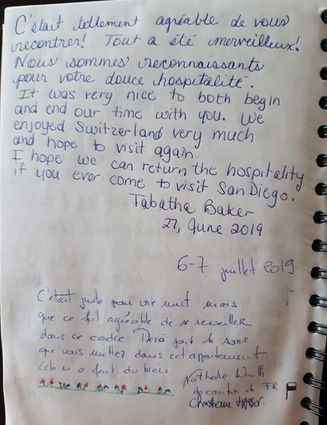 C'était tellement agréable de vous
rencontrer! Tout a été merveilleux!
Nous sommes reconnaissants
pour votre douce hospitalité.
It was very nice to both begin
and end our time with you. We
enjoyed Switzerland very much
and hope to visit again.
I hope we can return the hospitality
if you ever come to visit San Diego.
Tabatha Baker
27, June 2019
6-7 juillet 2019
C'était juste pour une nuit mais
que ce fut agréable de se réveiller
dans ce cadre. Merci pour le soin
que vous mettez dans cet appartement.
Cela m'a fait du bien
Nathalie
du canton de FR
Christiane